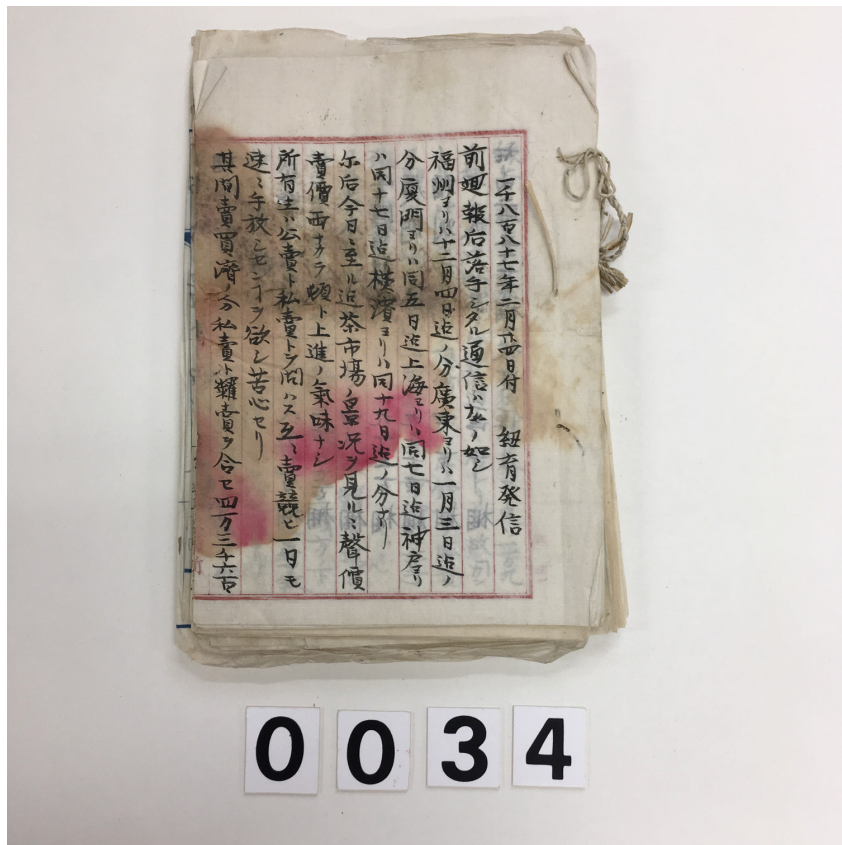 一千八百八十七年二月廿四日付 紐育発信
前廻報后落手シタル通信ハ左ノ如シ
福州ヨリハ十二月四日迠ノ分廣東ヨリハ一月三日迠ノ
分廈門ヨリハ同五日迠上海ヨリハ同七日迠神戸ヨリ
ハ同十七日迠横濱ヨリハ同十九日迠ノ分ナリ
尓后今日ニ至ル迠茶市場ノ景况ヲ見ルニ聲價
賣價両ナカラ頓ト上進ノ氣味ナシ
所有主ハ公賣ト私賣トヲ問ハス互ニ賣競ヒ一日モ
速ニ手放シセンヿヲ欲シ苦心セリ
其間賣買濟ノ分私賣ト糶賣ヲ合セ四万三千六百
0034